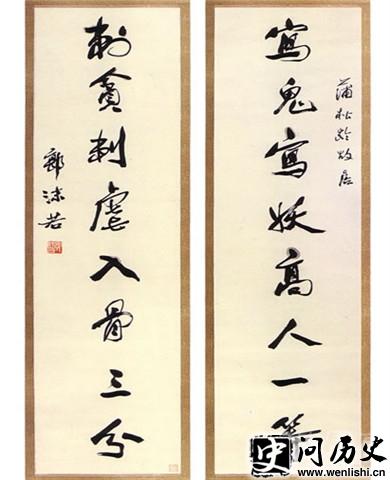 蒲松龄故居
寫鬼寫妖高人一等
刺貪刺虐入骨三分
郭沫若
史问历史
www.wenlishi.cn